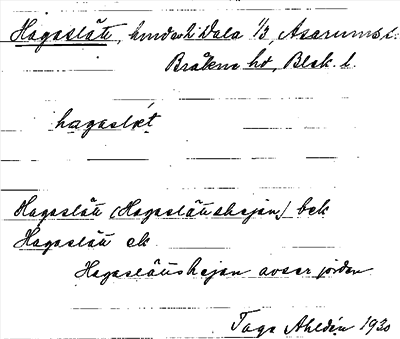 Hagaslätt, hmdsv i Dala 1/3, Asarums s.
Bräkne hd, Blek. l.
hagaslæt
Hagaslätt (Hagaslättshejan) bek
Hagaslätt ek
Hagaslättshejan avser jorden
Tage Ahldén 1930